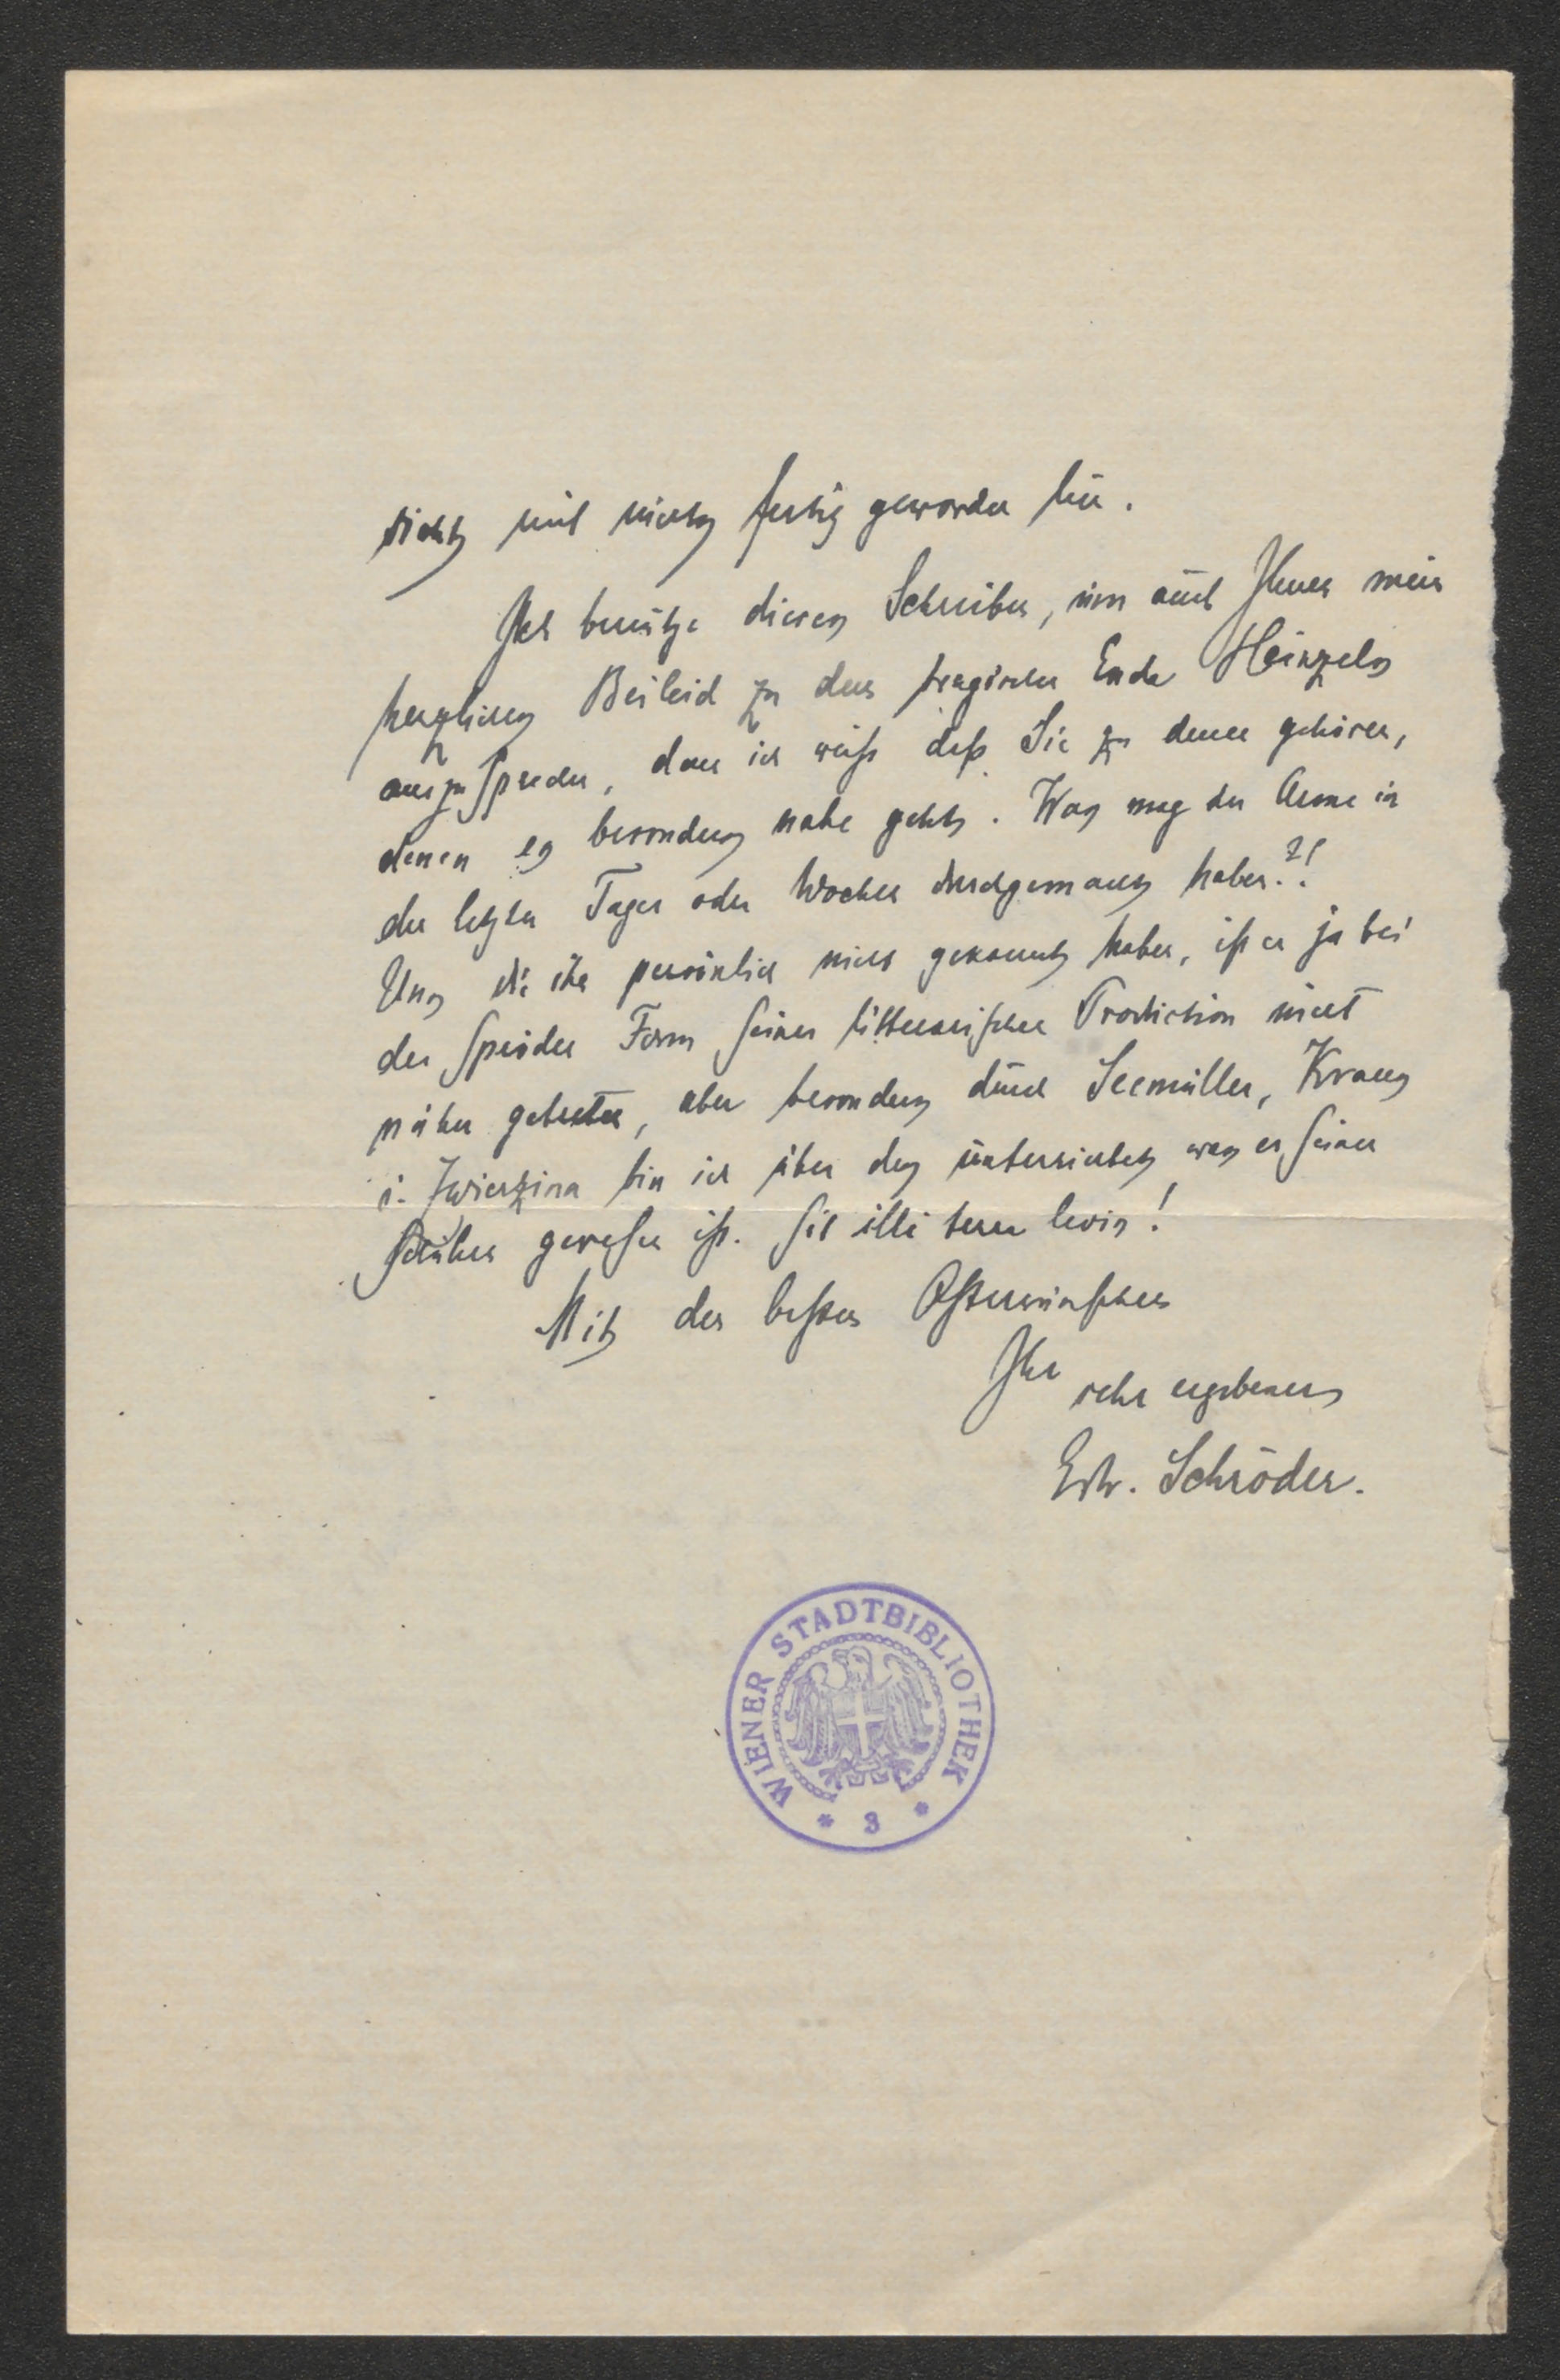 richts mit nichts fertig geworden bin.
Ich benütze dieses Schreiben, um auch Ihnen mein
herzliches Beileid zu dem tragischen Ende Heinzels
auszusprechen, denn ich weiß daß Sie zu denen gehören,
denen es besonders nahe geht. Was mag der Arme in
den letzten Tagen oder Wochen durchgemacht haben?!
Uns die ihn persönlich nicht gekannt haben, ist er ja bei
der spröden Form seiner litterarischen Production nicht
näher getreten, aber besonders durch Seemüller, Kraus
u. Zwierzina bin ich über das unterrichtet, was er seinen
Schülern gewesen ist. Sit illi terra levis!
Mit den besten Osterwünschen
Ihr sehr ergebener
Edw. Schröder.
WIENER STADTBIBLIOTHEK
* 3 *